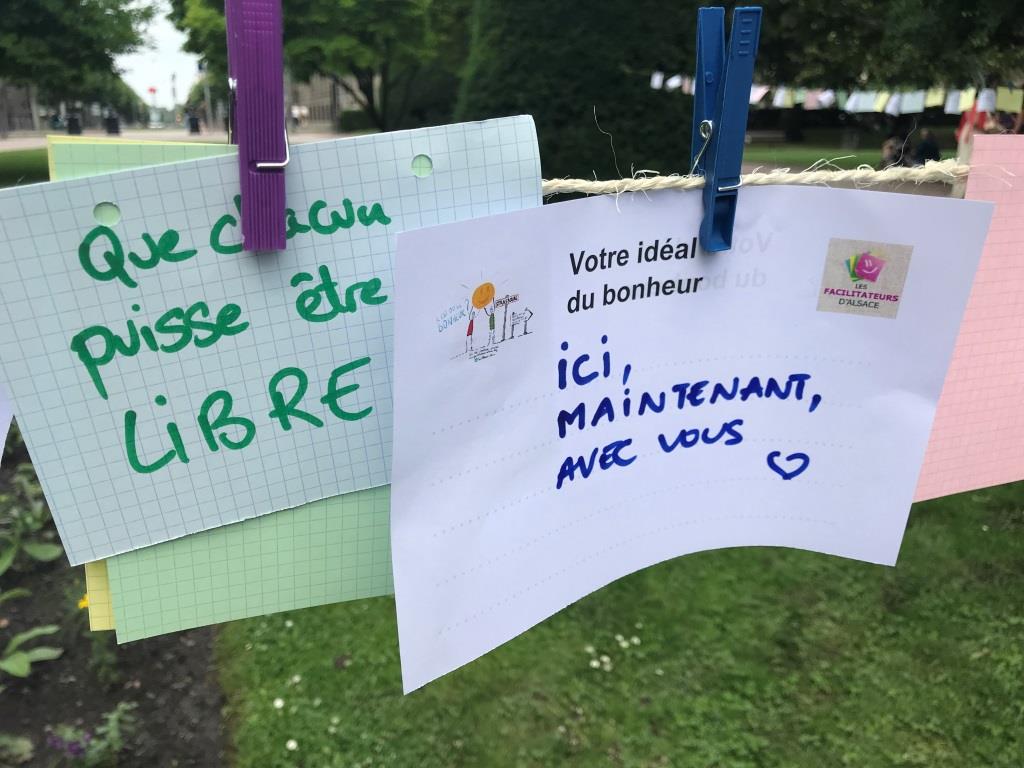 Que chacun
puisse être
LiBRE
Votre idéal
du bonheur
LES
FACILITATEURS
D'ALSACE
BONHEUR
iCi,
MAiNTENANT,
AVEC VOUS